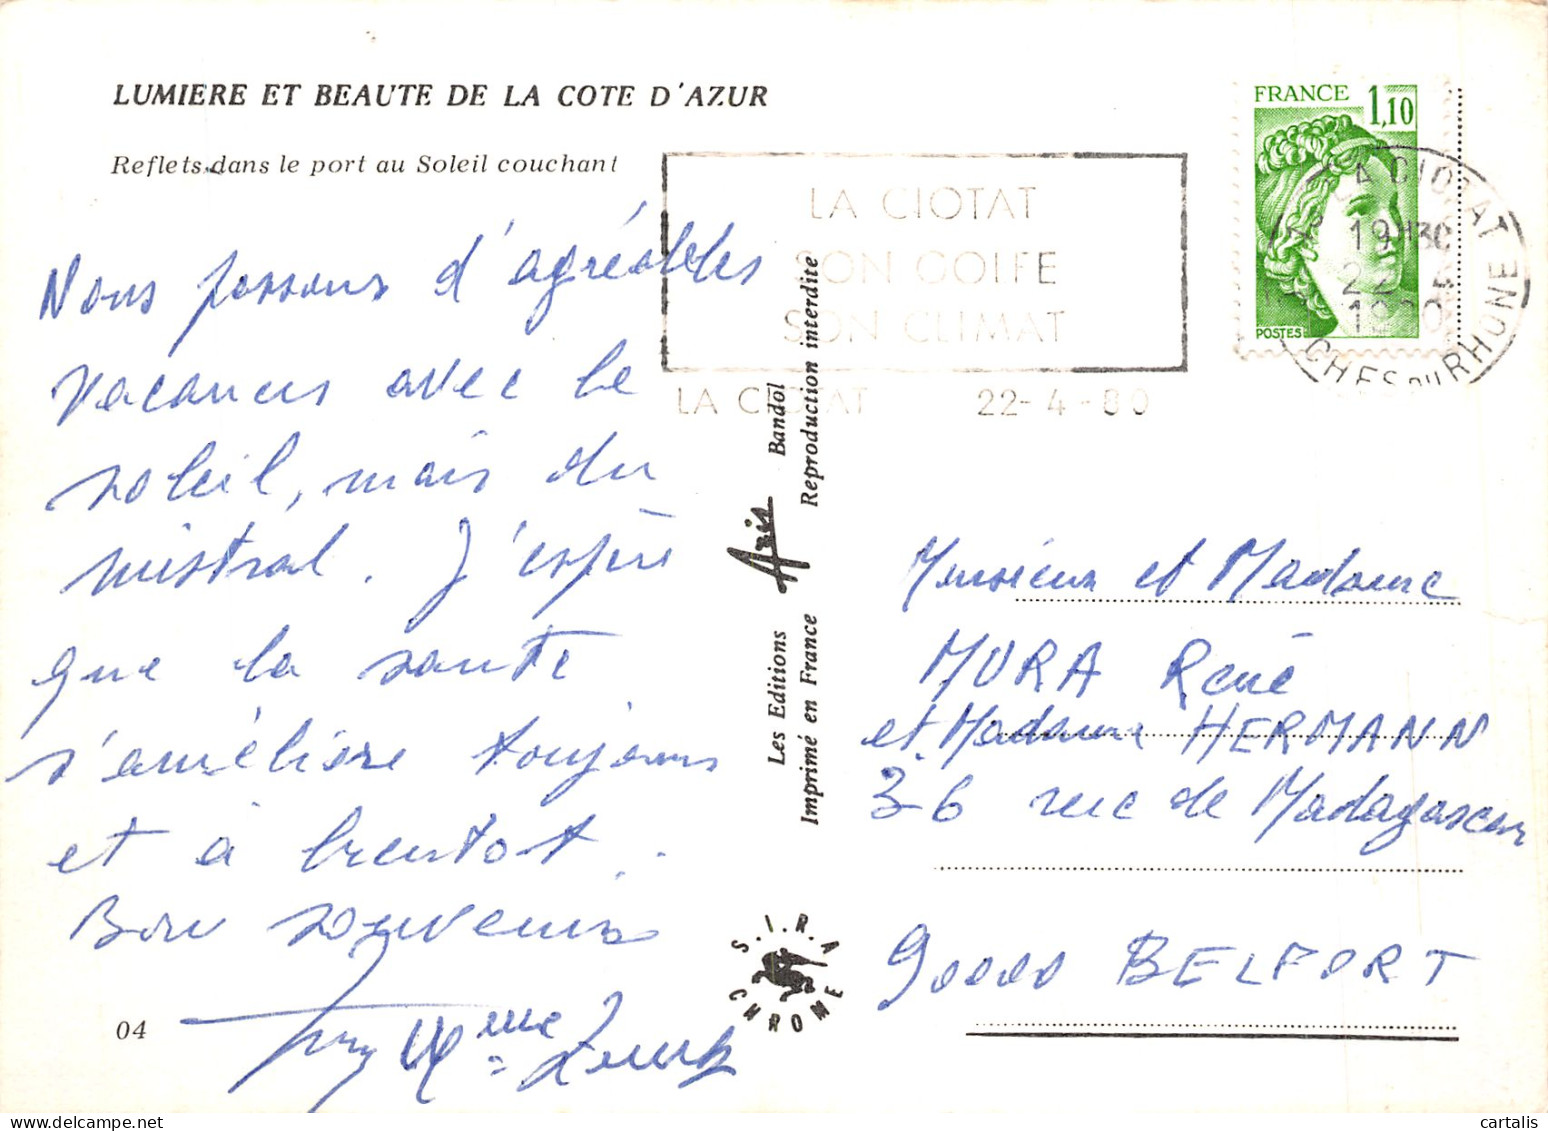 LUMIERE ET BEAUTE DE LA COTE D'AZUR
Reflets dans le port au Soleil couchant
Nous passons d'agréables
vacances avec le
soleil, mais du
mistral. J'espère
que la santé
s'améliore toujours
et à bientôt.
Bon souvenir
04
FRANCE 1,10
POSTES
LA CIOTAT
SON GOLFE
SON CLIMAT
LA CIOTAT 22-4-80
LA CIOTAT
19H30
22
1980
CHES DU RHONE
Les Editions Azis Bandol
Imprimé en France Reproduction interdite
S.I.R.A
CHROME
Monsieur et Madame
MURA René
et Madame HERMANN
36 rue de Madagascar
90000 BELFORT
cartalis